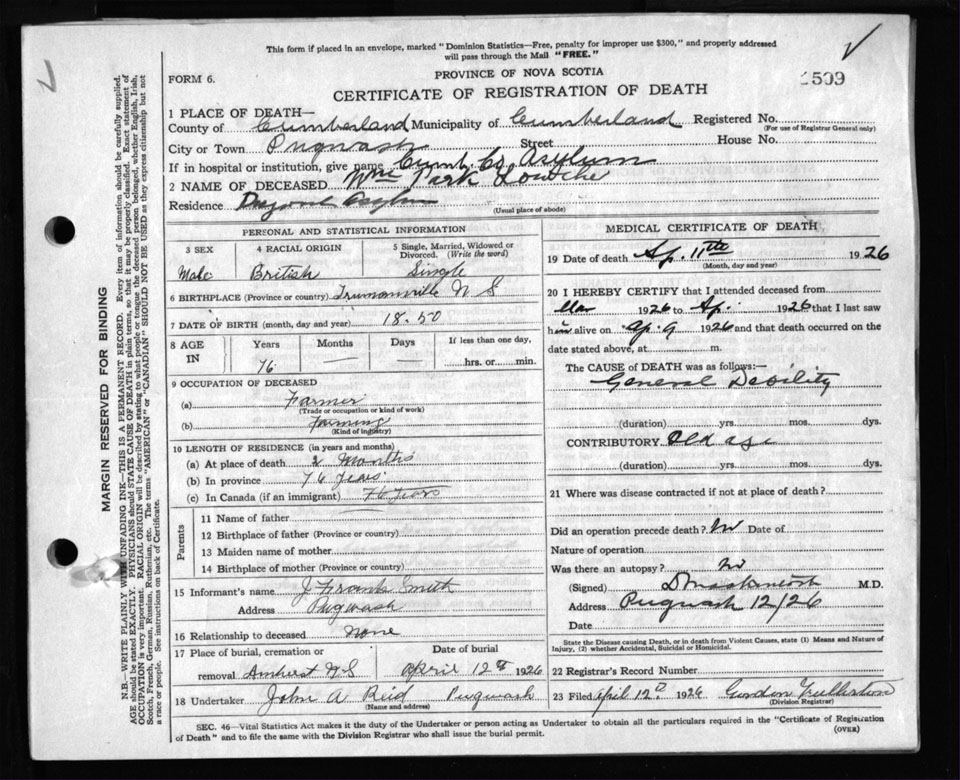 This form if placed in an envelope, marked "Dominion Statistics—Free, penalty for improper use $300," and properly addressed
will pass through the Mail "FREE."
FORM 6.
PROVINCE OF NOVA SCOTIA
1509
CERTIFICATE OF REGISTRATION OF DEATH
1 PLACE OF DEATH—
County of Cumberland Municipality of Cumberland Registered No.
(For use of Registrar General only)
City or Town Pugwash Street House No.
If in hospital or institution, give name Cumb. Co Asylum
2 NAME OF DECEASED Wm Park
Residence Asylum
(Usual place of abode)
PERSONAL AND STATISTICAL INFORMATION
3 SEX 4 RACIAL ORIGIN 5 Single, Married, Widowed or Divorced. (Write the word)
Male British Single
6 BIRTHPLACE (Province or country) Trumanville N S
7 DATE OF BIRTH (month, day and year) 18-50
8 AGE IN Years Months Days If less than one day,
76 — — hrs. or min.
9 OCCUPATION OF DECEASED
(a) Farmer
(Trade or occupation or kind of work)
(b) Farming
(Kind of industry)
10 LENGTH OF RESIDENCE (in years and months)
(a) At place of death 2 Months
(b) In province 76 years
(c) In Canada (if an immigrant) 76 years
Parents
11 Name of father
12 Birthplace of father (Province or country)
13 Maiden name of mother
14 Birthplace of mother (Province or country)
15 Informant's name J Frank Smith
Address Pugwash
16 Relationship to deceased None
17 Place of burial, cremation or removal Amherst N S
Date of burial April 12th 1926
18 Undertaker John A Reid Pugwash
(Name and address)
MEDICAL CERTIFICATE OF DEATH
19 Date of death Ap. 11th 1926
(Month, day and year)
20 I HEREBY CERTIFY that I attended deceased from
Mar 1926 to Ap. 1926 that I last saw
him alive on Ap. 9 1926 and that death occurred on the
date stated above, at m.
The CAUSE OF DEATH was as follows:
General Debility
(duration) yrs. mos. dys.
CONTRIBUTORY Old age
(duration) yrs. mos. dys.
21 Where was disease contracted if not at place of death?
Did an operation precede death? No Date of
Nature of operation
Was there an autopsy? No
(Signed) D Mackintosh M.D.
Address Pugwash 12/26
Date
State the Disease causing Death, or in death from Violent Causes, state (1) Means and Nature of
Injury, (2) whether Accidental, Suicidal or Homicidal.
22 Registrar's Record Number
23 Filed April 12 1926 Gordon Fullerton
(Division Registrar)
SEC. 46—Vital Statistics Act makes it the duty of the Undertaker or person acting as Undertaker to obtain all the particulars required in the "Certificate of Registration
of Death" and to file the same with the Division Registrar who shall issue the burial permit.
(OVER)
MARGIN RESERVED FOR BINDING
N.B.—WRITE PLAINLY WITH UNFADING INK—THIS IS A PERMANENT RECORD. Every item of information should be carefully supplied.
AGE should be stated EXACTLY. PHYSICIANS should STATE CAUSE OF DEATH in plain terms, so that it may be properly classified. Exact statement of
OCCUPATION is very important. RACIAL ORIGIN will be described by stating to what people or tongue the deceased person belonged, whether English, Irish,
Scotch, French, German, Russian, Ruthenian, etc. The terms "AMERICAN" or "CANADIAN" SHOULD NOT BE USED as they express citizenship but not
a race or people. See instructions on back of Certificate.